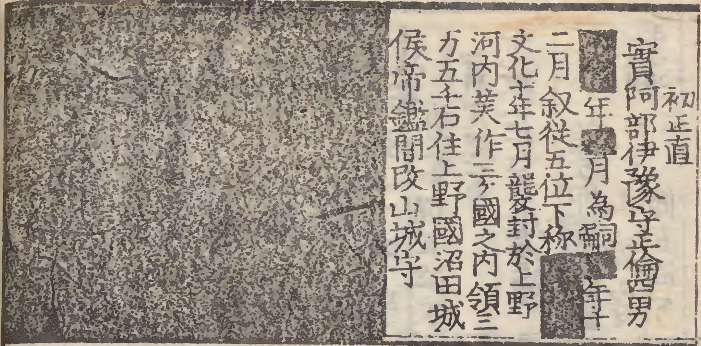 初正直
實阿部伊豫守正倫四男
年月為嗣年十
二月叙從五位下称
文化十年七月襲封於上野
河内美作三ヶ國之内領三
万五千石住上野國沼田城
侯帝鑑間改山城守